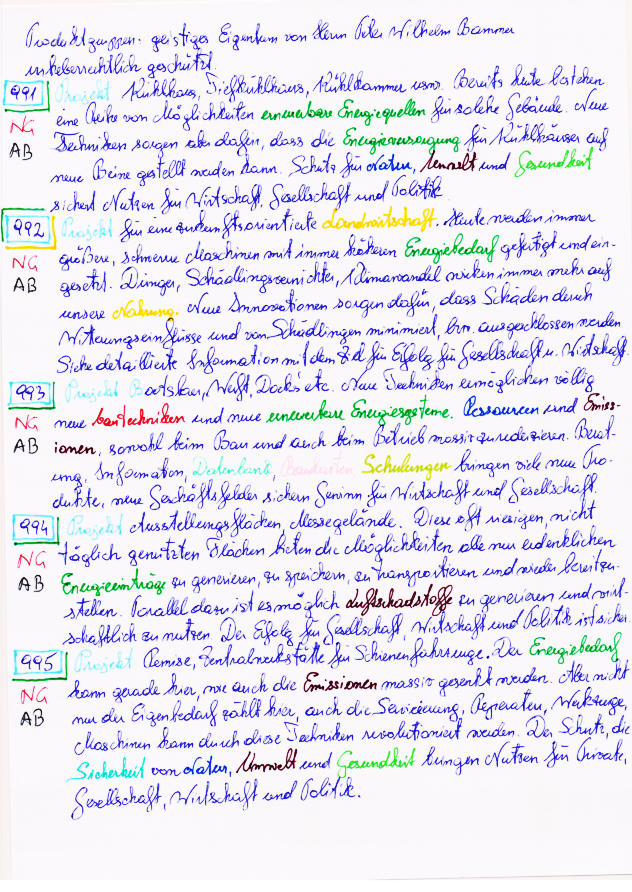 Produktgruppen: geistiges Eigentum von Herrn Peter Wilhelm Bammer
urheberrechtlich geschützt.
991 Projekt Kühlhaus, Tiefkühlhaus, Kühlkammer usw. Bereits heute bestehen
NG eine Reihe von Möglichkeiten erneuerbare Energiequellen für solche Gebäude. Neue
AB Techniken sorgen aber dafür, dass die Energieversorgung für Kühlhäuser auf
neue Beine gestellt werden kann. Schutz für Natur, Umwelt und Gesundheit
sichert Nutzen für Wirtschaft, Gesellschaft und Politik
992 Projekt für eine zukunftsorientierte Landwirtschaft. Heute werden immer
NG größere, schwerere Maschinen mit immer höheren Energiebedarf gefertigt und ein-
AB gesetzt. Dünger, Schädlingsvernichter, Klimawandel wirken immer mehr auf
unsere Nahrung. Neue Innovationen sorgen dafür, dass Schäden durch
Witterungseinflüsse und von Schädlingen minimiert, bzw. ausgeschlossen werden
Siehe detaillierte Information mit dem Ziel für Erfolg für Gesellschaft u. Wirtschaft.
993 Projekt Bootsbau, Werft, Docks etc. Neue Techniken ermöglichen völlig
NG neue bautechniken und neue erneuerbare Energiesysteme. Ressourcen und Emiss-
AB ionen, sowohl beim Bau und auch beim Betrieb massiv zu reduzieren. Berat-
ung, Information, Datenbank, Baudaten Schulungen bringen viele neue Pro-
dukte, neue Geschäftsfelder sichern Gewinn für Wirtschaft und Gesellschaft.
994 Projekt Ausstellungsflächen, Messegelände. Diese oft riesigen, nicht
NG täglich genutzten Flächen bieten die Möglichkeiten alle nur erdenklichen
AB Energieeinträge zu generieren, zu speichern, zu transportieren und wieder bereitzu-
stellen. Parallel dazu ist es möglich Luftschadstoffe zu generieren und wirt-
schaftlich zu nutzen. Der Erfolg für Gesellschaft, Wirtschaft und Politik ist sicher.
995 Projekt Remise, Zentralwerkstätte für Schienenfahrzeuge. Der Energiebedarf
NG kann gerade hier, wie auch die Emissionen massiv gesenkt werden. Aber nicht
AB nur der Eigenbedarf zählt hier, auch die Servicierung, Reperaten, Werkzeuge,
Maschinen kann durch diese Techniken revolutioniert werden. Der Schutz, die
Sicherheit von Natur, Umwelt und Gesundheit bringen Nutzen für Private,
Gesellschaft, Wirtschaft und Politik.